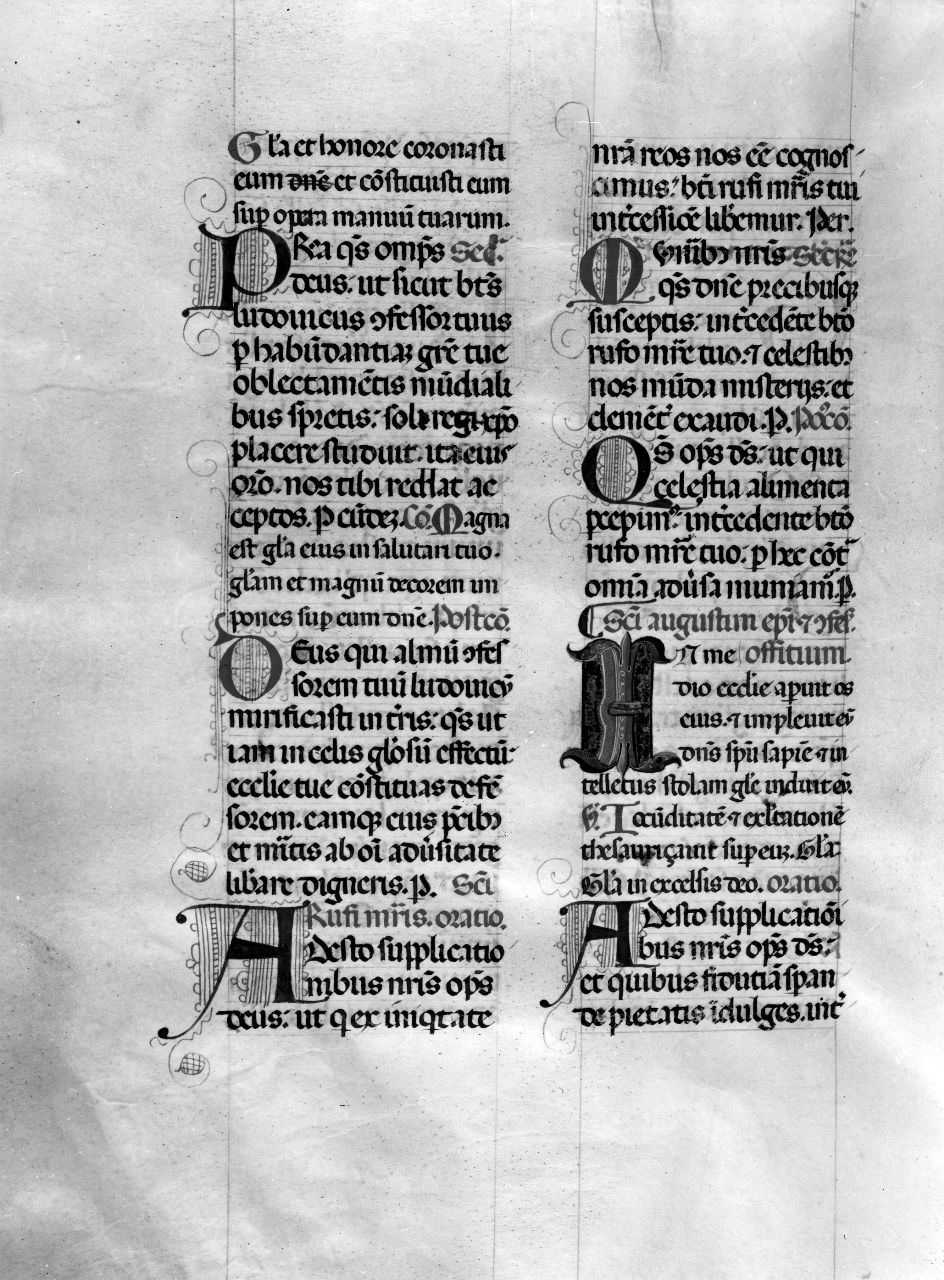 Gl'a et honore coronasti
eum dn̄e et cōstituisti eum
sup̱ opera manuū tuarum.
PRea qs̄ omp̄s Sec̄.
deus: ut sicut bt̄s
ludouicus ꝯfessor tuus
ꝑ habūdantiaꝫ gr̄e tue
oblectamētis mūdiali
bus spretis: soli regi xp̄o
placere studuit. ita eius
orō. nos tibi reddat ac
ceptos. P eūdeꝫ. Cō. Magna
est gl'a eius in salutari tuo.
gl'am et magnū decorem im
pones sup̱ eum dn̄e. Postcō.
DEus qui almū ꝯfes
sorem tuū ludouicū
mirificasti in t̄ris: qs̄ ut
iam in celis gl'osū effectū:
ecclīe tue cōstituas defē
sorem. eamqꝫ eius p̄cibꝫ
et mītis ab oī adū̓sitate
lib̓are digneris. P. Scī
Rufi mr̄is. oratio.
ADesto supplicatio
nibus nr̄is op̄s
deus: ut q ex iniqͥtate
nr̄a reos nos eē cognos
cimus: bt̄i rufi mr̄is tui
int̓cessiōe lib̓emur. Per.
OMnibꝫ nr̄is Secre
qs̄ dn̄e precibusqꝫ
susceptis: int̓cedēte bt̄o
rufo mr̄e tuo: ⁊ celestibꝫ
nos mūda misterijs: et
clemēt̓ exaudi. P. Pꝰcō.
OS̄ op̄s ds̄: ut qui
celestia alimenta
ꝑcepimꝰ: int̓cedente bt̄o
rufo mr̄e tuo: ꝑ hec cōt̓
omnia adū̓sa muniam̄. P.
Scī augustini ep̄i ⁊ ꝯfes̄.
IN me offitium
dio ecclīe aperuit os
eius. ⁊ impleuit eū
dn̄s sp̄u sapīe ⁊ in
tellectus stolam gl'e induit eū.
℣. Iocūditatē ⁊ exl'tationē
thesauriçauit super eū. Gl'a.
Gl'a in excelsis deo. oratio.
ADesto supplicatiōi
bus nr̄is op̄s ds̄:
et quibus fidutiā speran
de pietatis īdulges. int̓